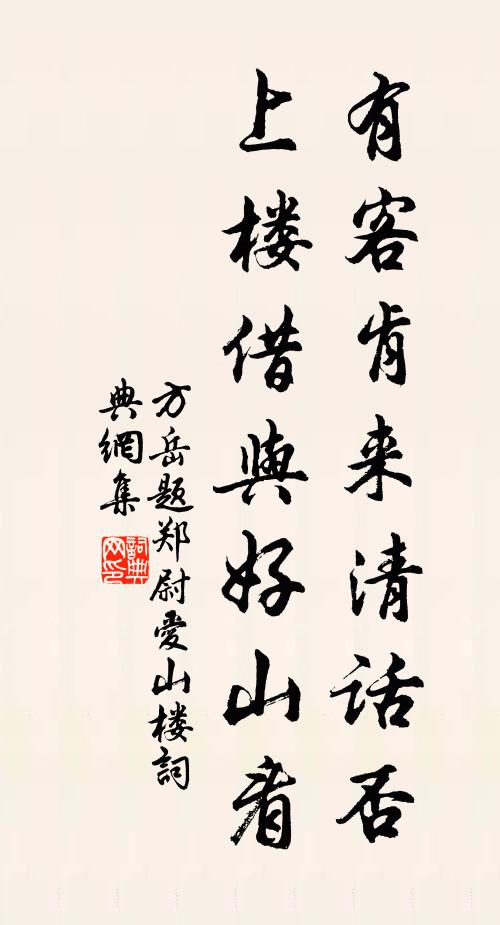 有客肯来清话否
上楼借與好山看
方岳题郑尉爱山楼詞
典網集
詞典网印